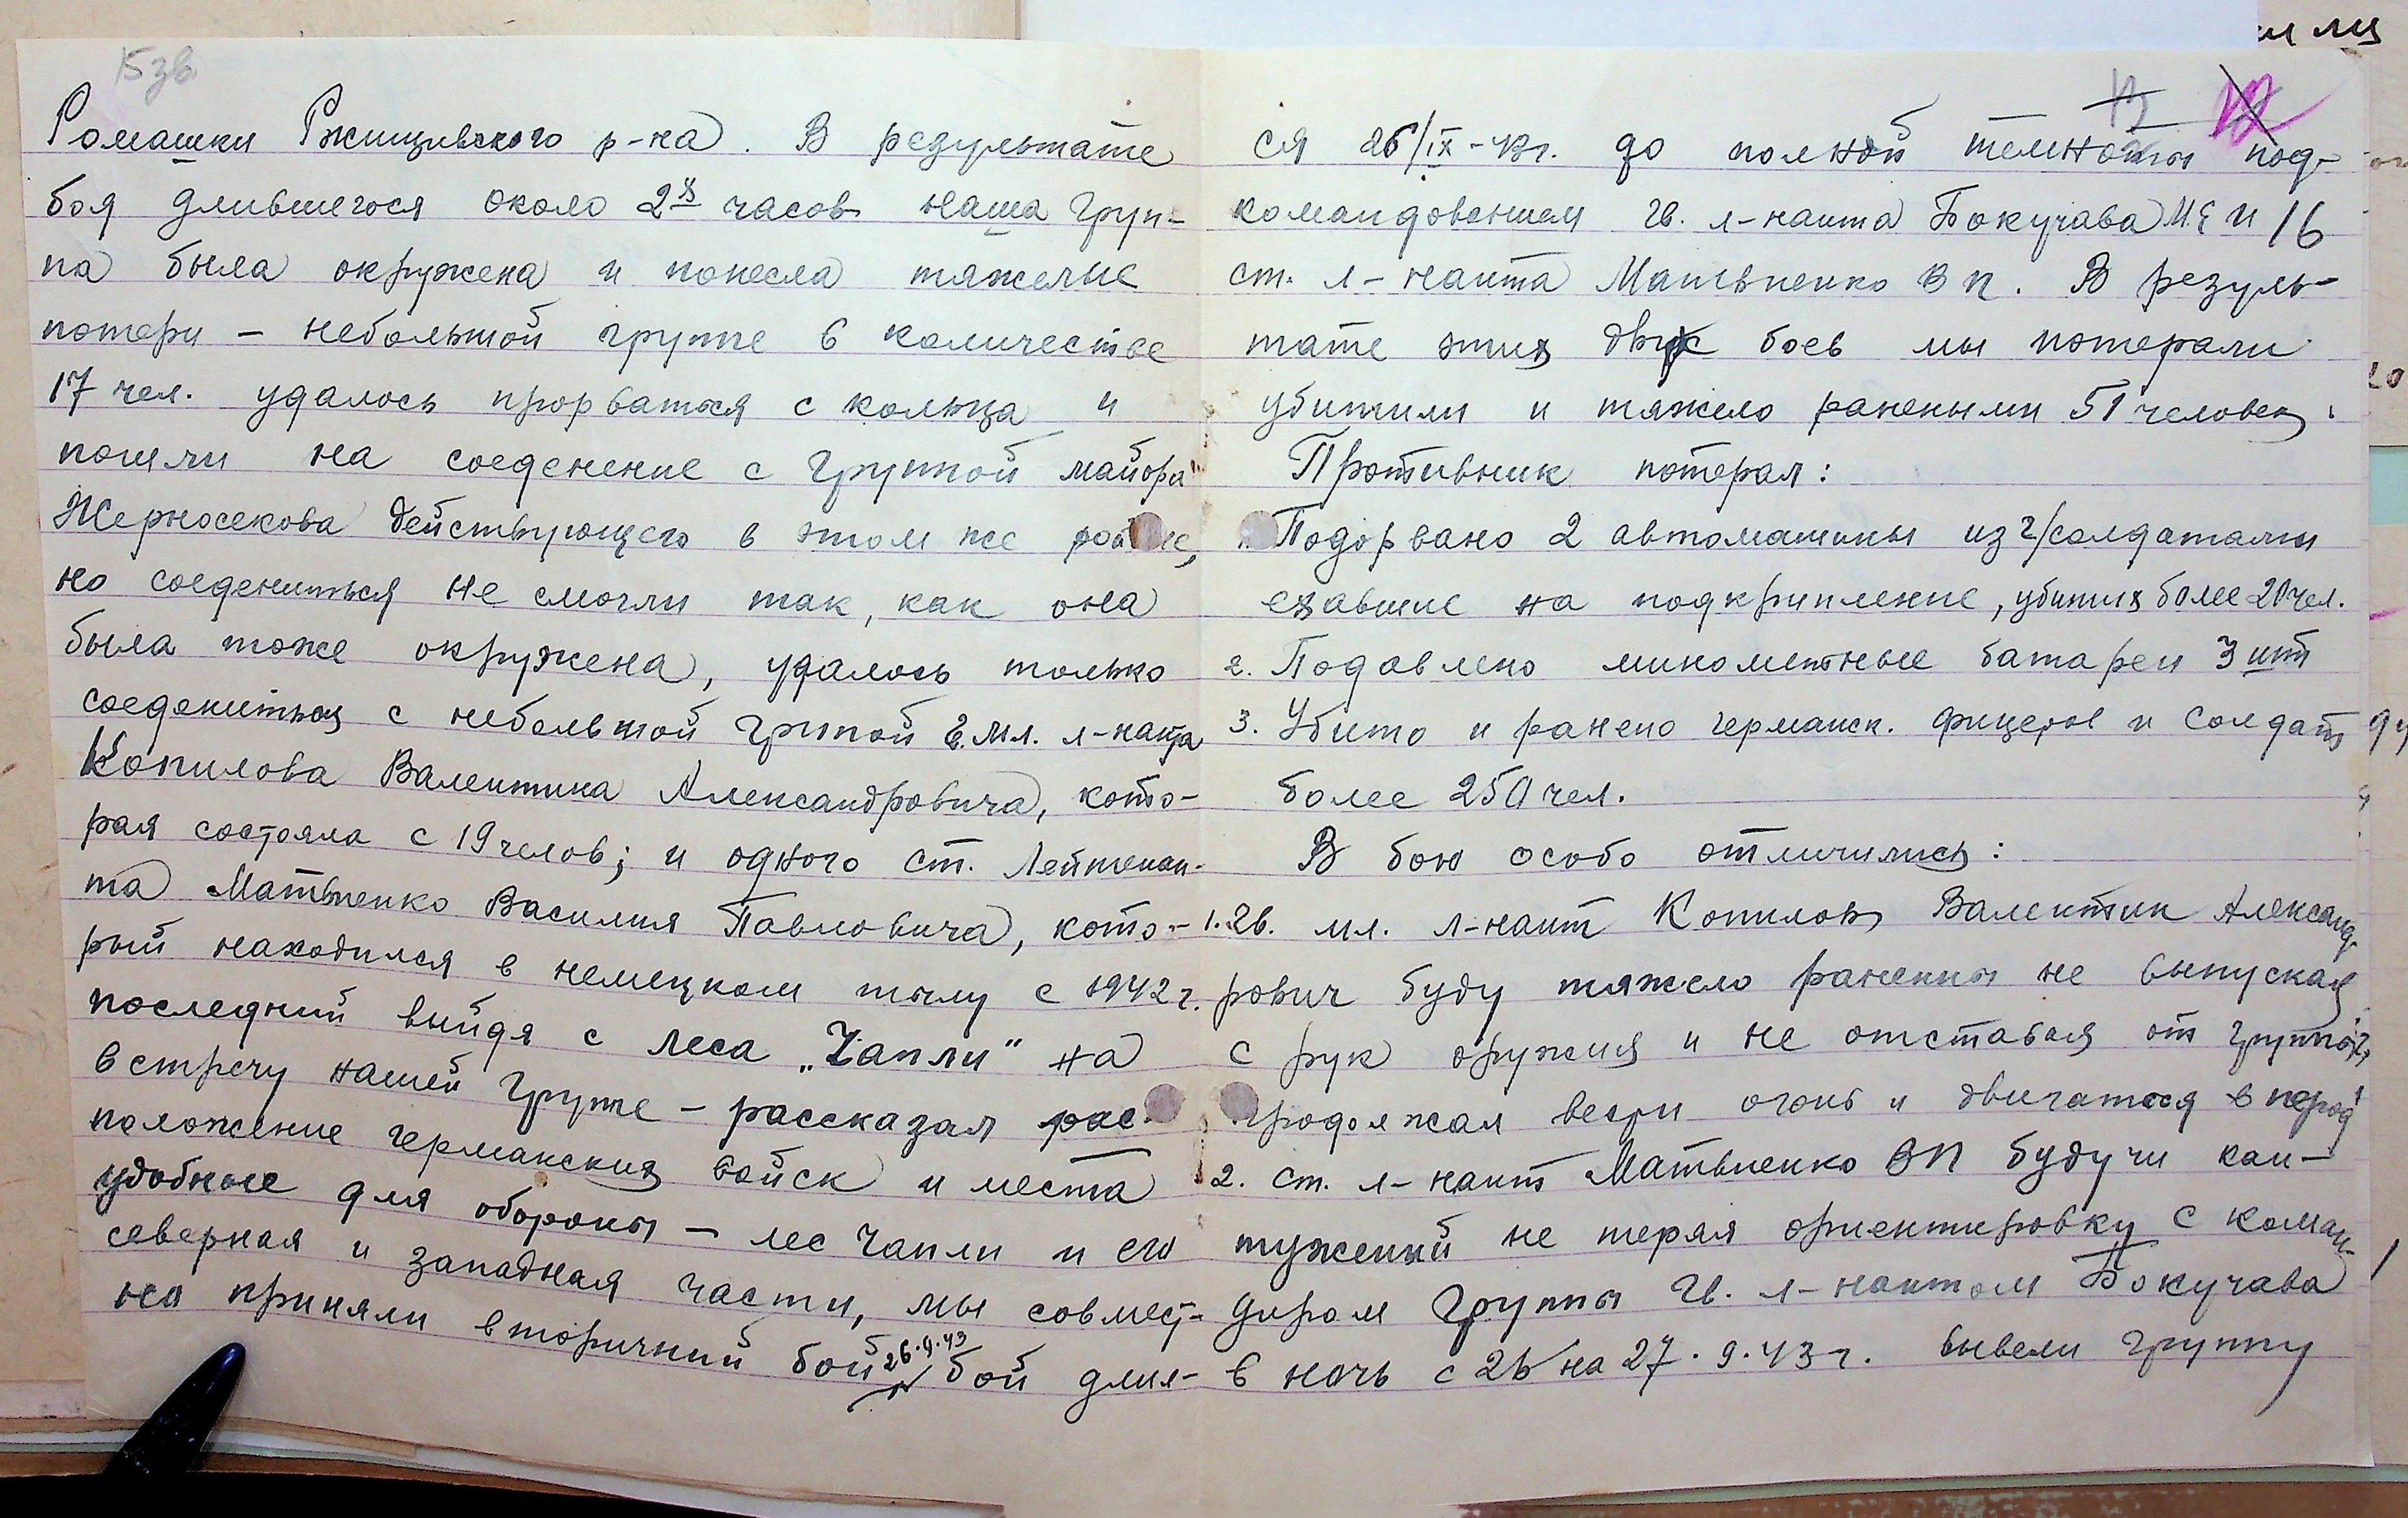 15 зв
Ромашки Ржищевского р-на. В результате
боя длившегося около 2х часов наша груп-
па была окружена и понесла тяжелые
потери – небольшой группе в количестве
17 чел. удалось прорваться с кольца и
пошли на соеденение с группой майора
Жерносекова действующего в этом же
но соедениться не смогли так, как она
была тоже окружена, удалось только
соедениться с небольшой групой гв. мл. л-нанта
Копилова Валентина Александровича, кото-
рая состояла с 19 челов; и одного ст. Лейтенан-
та Матвиенко Василия Павловича, кото-
рый находился в немецком тылу с 1942 г.
последний выйдя с леса „Чапли" на
встречу нашей групе – рассказал рас-
положение германских войск и места
удобные для обороны – лес Чапли и его
северная и западная части, мы совмест-
но приняли вторичний бой 26.9.43 бой длил-
12
16
ся 26/IX-43г. до полной темноты под-
командованием гв. л-нанта Бокучава М.Е и
ст. л-нанта Матвиенко В П. В резуль-
тате этих двух боев мы потерали
убитыми и тяжело ранеными 51 человек.
Противник потерал:
Подорвано 2 автомашины из г/солдатами
ехавшие на подкрипление, убитых более 20 чел.
2. Подавлено минометные батареи 3 шт
3. Убито и ранено германск. фицеров и солдат
более 250 чел.
В бою особо отличились:
1. гв. мл. л-нант Копилов Валентин Александ-
рович буду тяжело раненны не выпуская
с рук оружия и не отставая от группы,
продолжал вести огонь и двигатося в перод
2. ст. л-нант Матвиенко ВП будучи кан-
туженный не теряя ориентировку с коман-
диром группы гв. л-нантом Бокучава
в ночь с 26 на 27.9.43 г. вывели группу